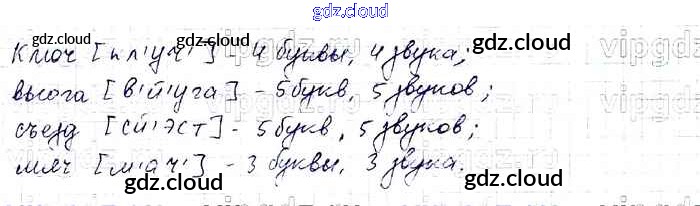 gdz.cloud
Ключ [кл'уч'] - 4 буквы, 4 звука;
вьюга [в'й'уга] - 5 букв, 5 звуков;
съезд [сй'эст] - 5 букв, 5 звуков;
мяч [м'ач'] - 3 буквы, 3 звука.
gdz.cloud